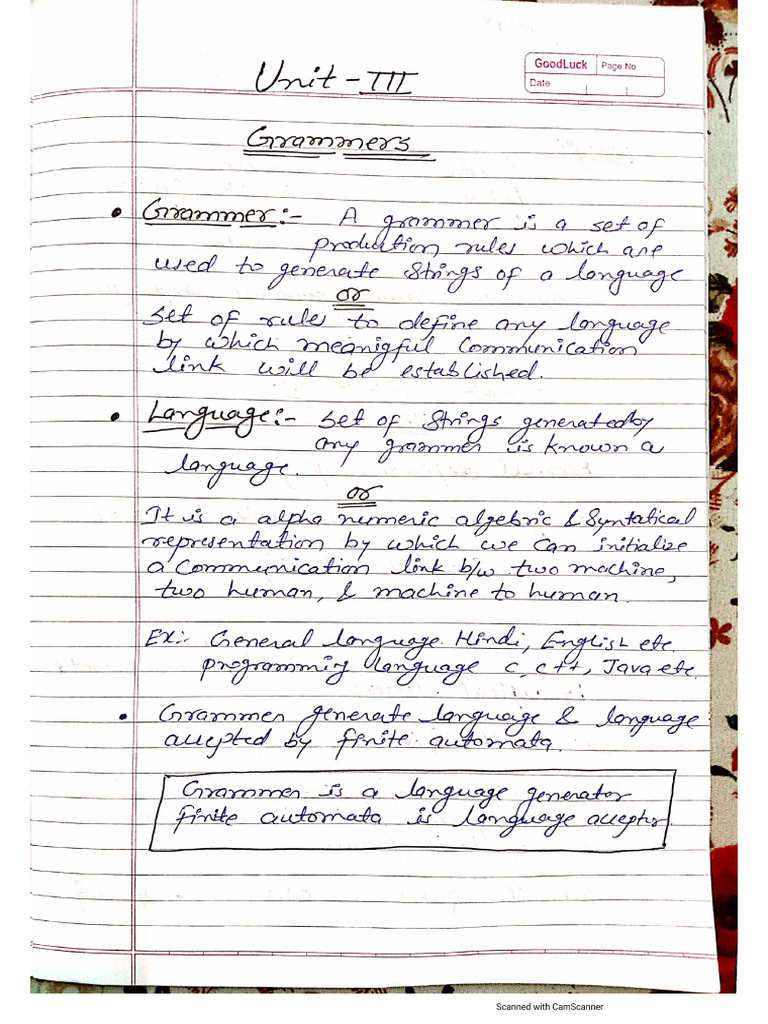 Unit - III
GoodLuck
Page No.
Date
Grammers
• Grammer:- A grammer is a set of
production rules which are
used to generate strings of a language
or
set of rules to define any language
by which meanigful communication
link will be established.
• Language:- set of strings generated by
any grammer is known a
language.
or
It is a alpha numeric algebric & Syntatical
representation by which we can initialize
a communication link b/w two machine,
two human, & machine to human.
Ex:- General language. Hindi, English etc.
programmig language c, c++, Java etc.
• Grammer generate language & language
accepted by finite automata.
Grammer is a language generator
finite automata is language acceptor.
Scanned with CamScanner